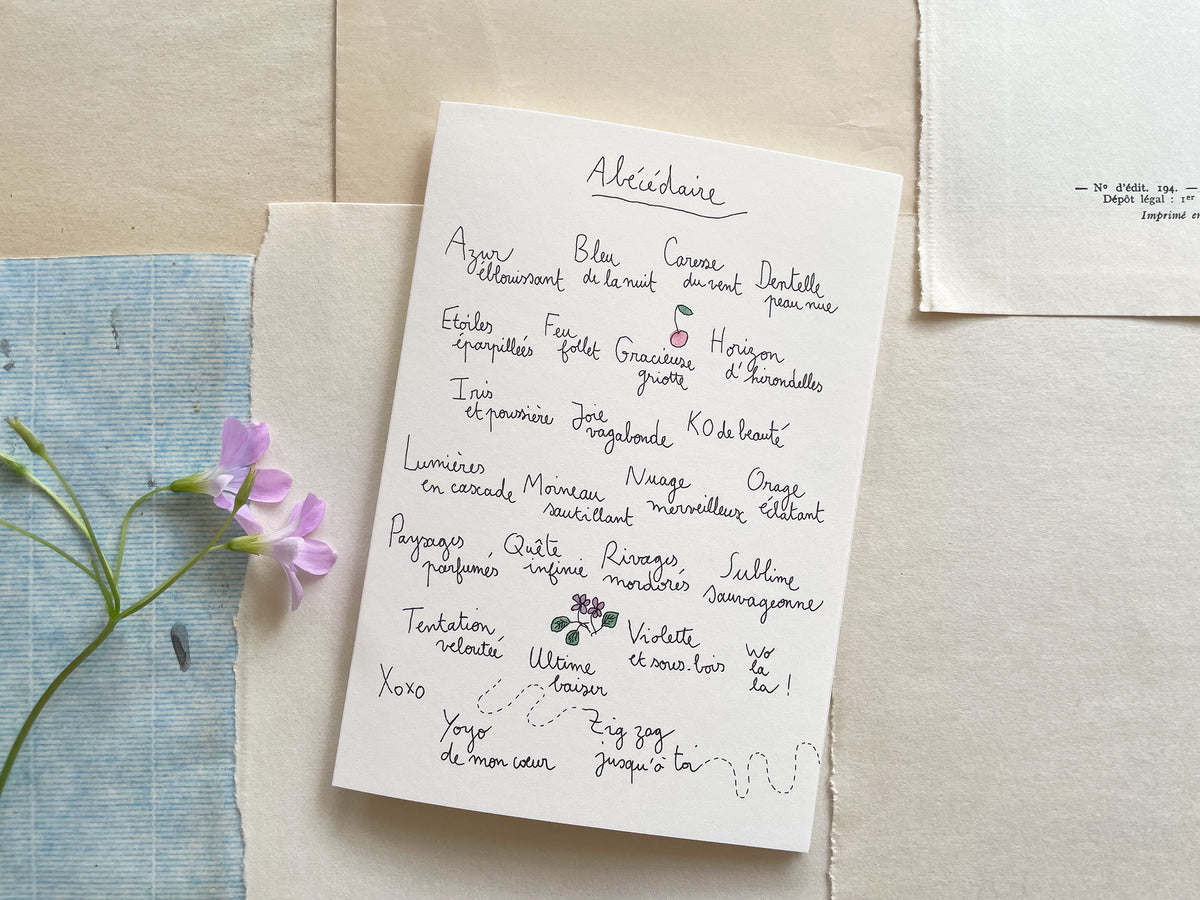 Abécédaire
Azur
éblouissant
Bleu
de la nuit
Caresse
du vent
Dentelle
peau nue
Etoiles
éparpillées
Feu
follet
Gracieuse
griotte
Horizon
d'hirondelles
Iris
et poussière
Joie
vagabonde
KO de beauté
Lumières
en cascade
Moineau
sautillant
Nuage
merveilleux
Orage
éclatant
Paysages
parfumés
Quête
infinie
Rivages
mordorés
Sublime
sauvageonne
Tentation
veloutée
Ultime
baiser
Violette
et sous-bois
Wo
la
la !
Xoxo
Yoyo
de mon cœur
Zig zag
jusqu'à toi
— Nº d'édit. 194. —
Dépôt légal : 1er
Imprimé en